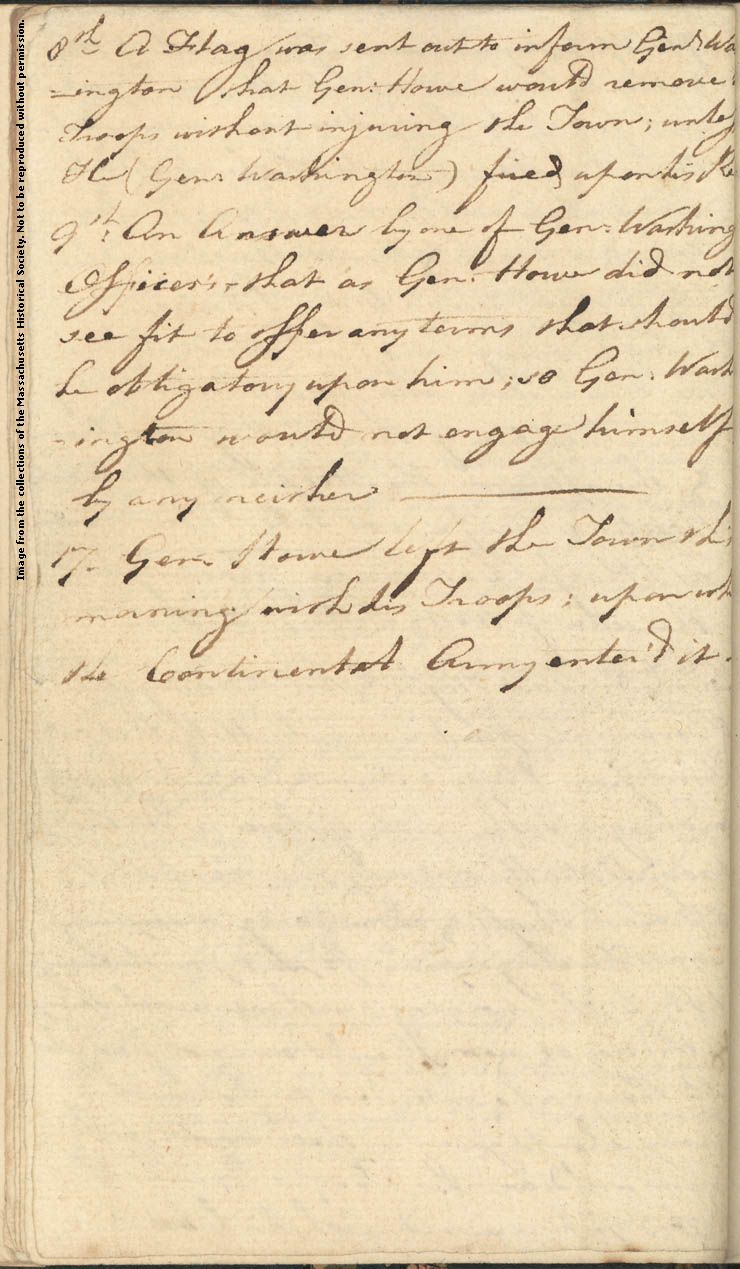 Image from the collections of the Massachusetts Historical Society. Not to be reproduced without permission.
8th. A Flag was sent out to inform Genl. Wa
=ington that Gen: Howe would remove
Troops without injuring the Town; unles
He (Gen: Washington) fired upon his Re
9th: An Answer by one of Gen: Washing
Officers, that as Gen: Howe did not
see fit to offer any terms that should
be obligatory upon him; so Gen: Wash
-ington would not engage himself
by any neither
17. Gen: Howe left the Town this
morning with his Troops; upon wh
the Continental Army enter'd it.